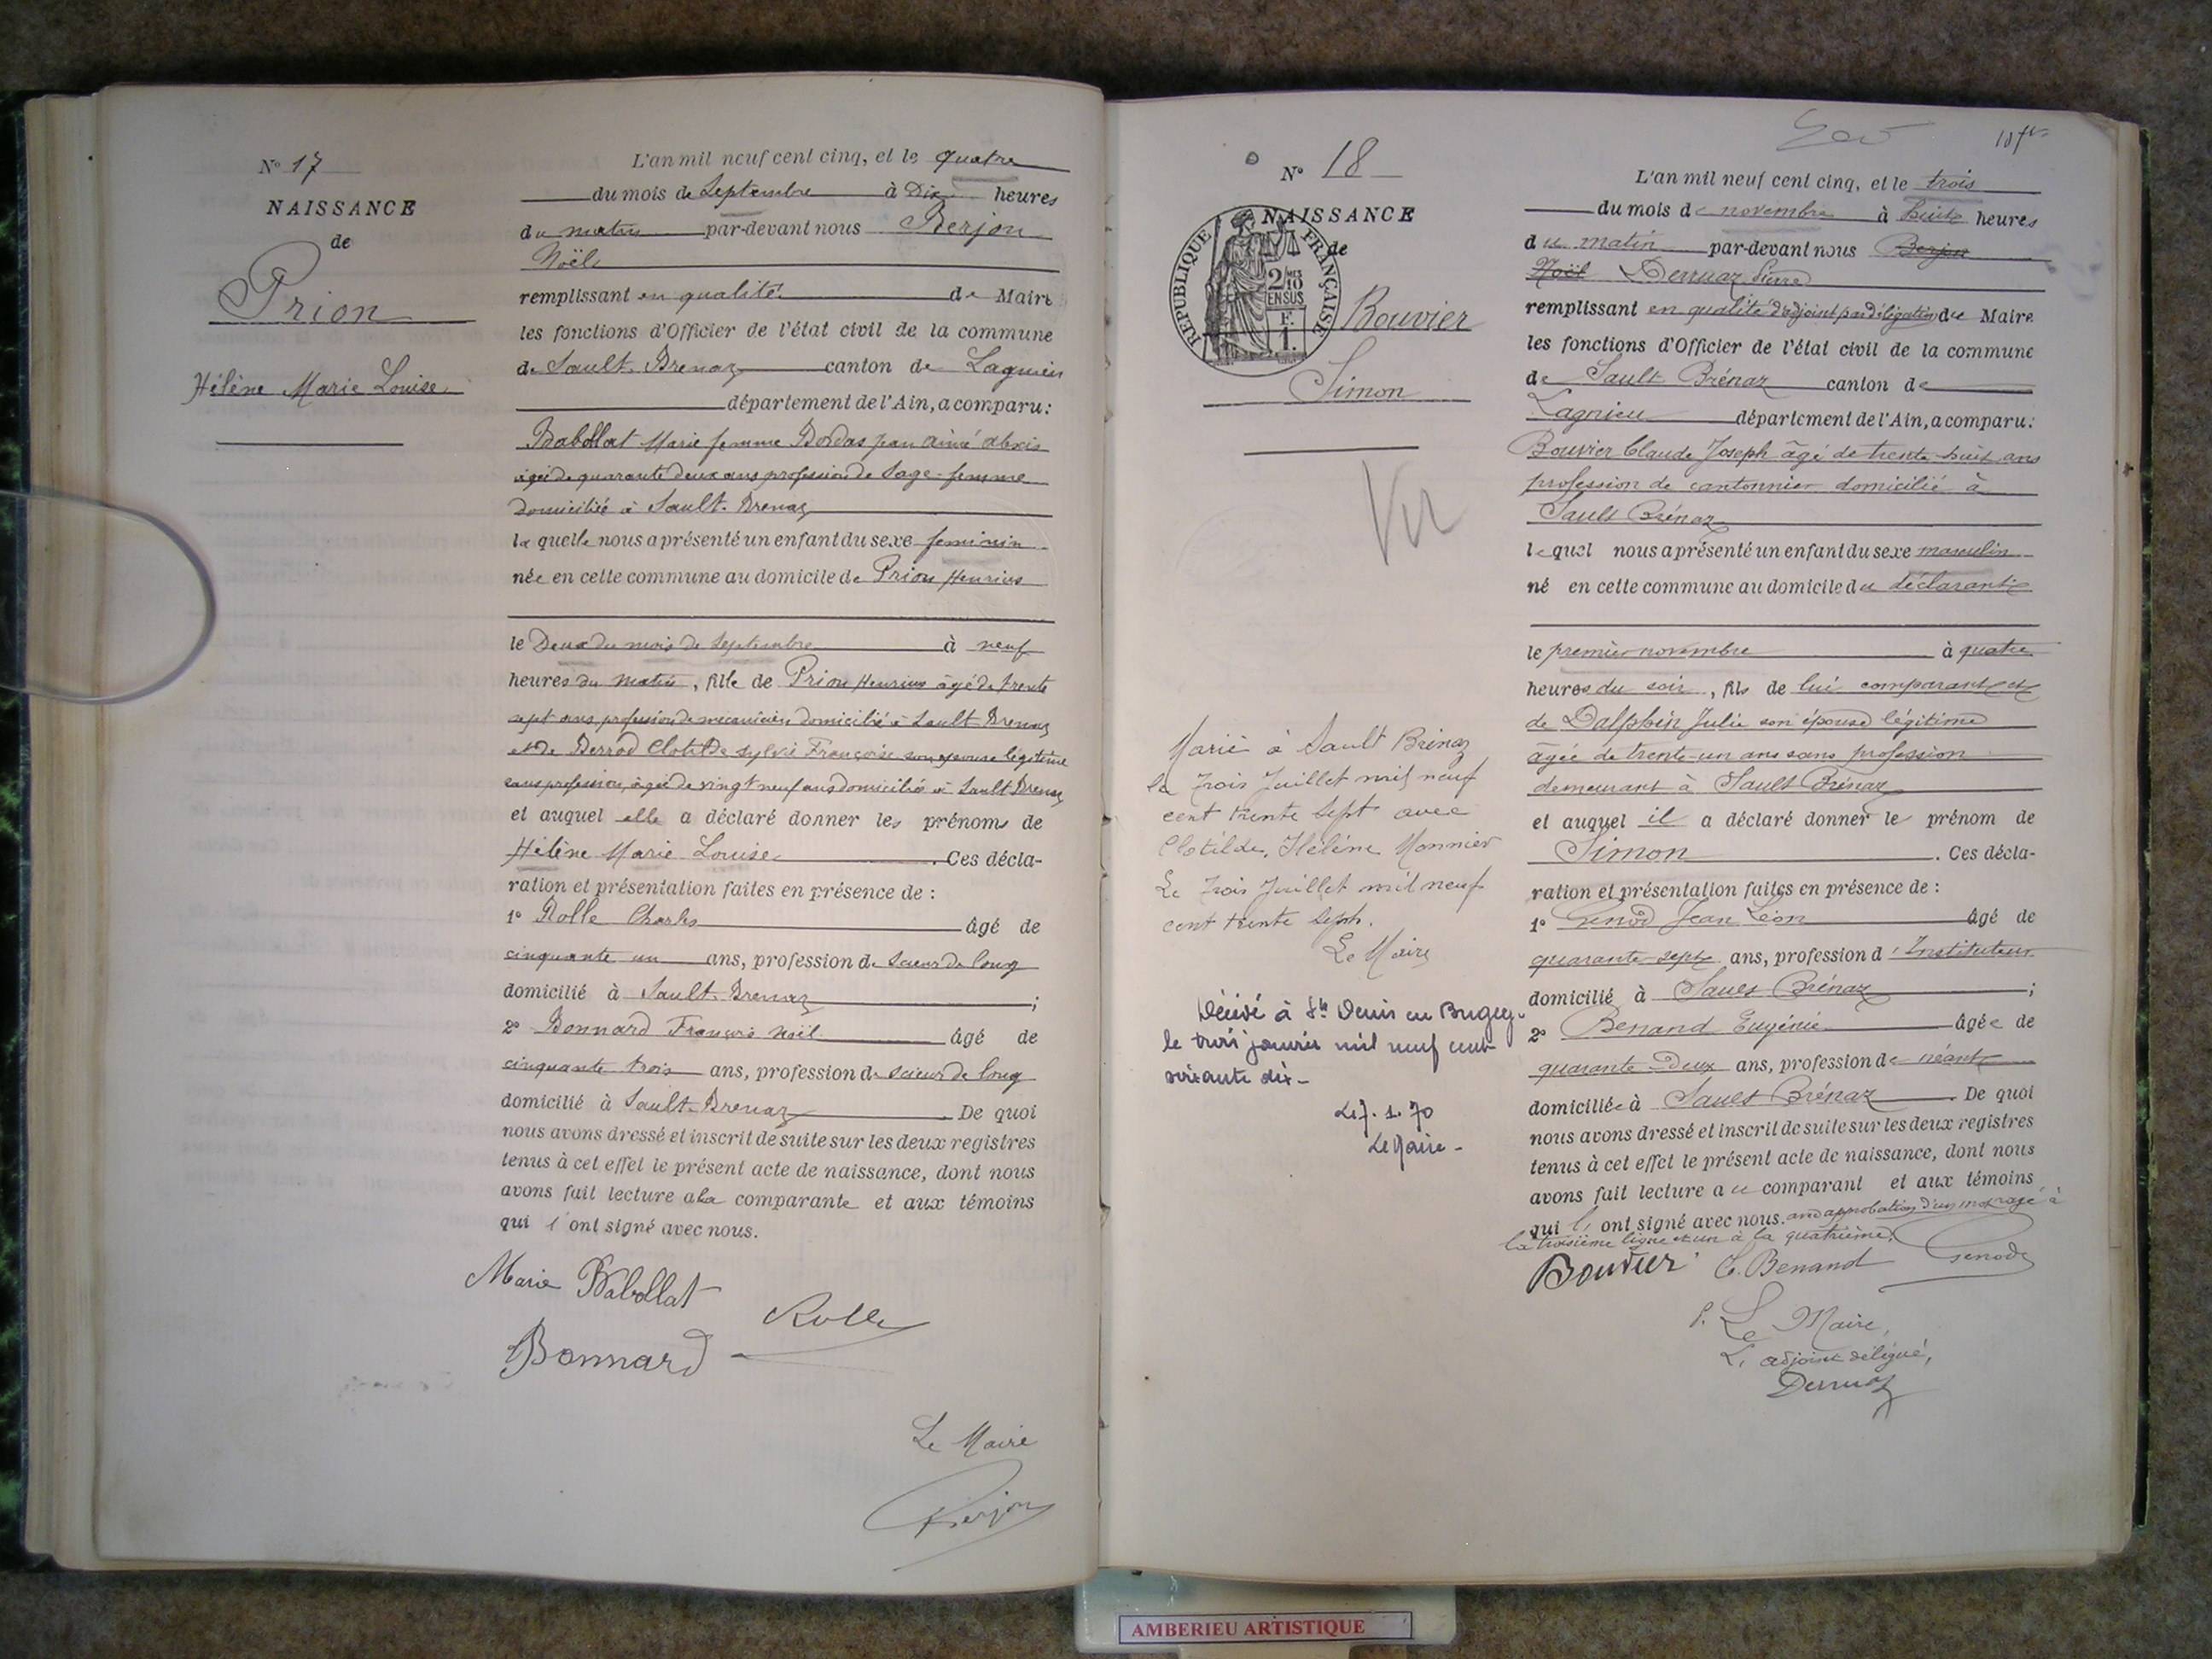 N° 17
NAISSANCE
de
Prion
Hélène Marie Louise
L'an mil neuf cent cinq, et le quatre
du mois de Septembre à Dix heures
du matin par-devant nous Berjon
Noël
remplissant en qualité de Maire
les fonctions d'Officier de l'état civil de la commune
de Sault-Brenaz canton de Lagnieu
département de l'Ain, a comparu :
Babollat Marie femme Bordas jean aimé alexis
agée de quarante deux ans profession de Sage-femme
domiciliée à Sault-Brenaz
la quelle nous a présenté un enfant du sexe feminin
née en cette commune au domicile de Prion Henrius
le Deux du mois de Septembre à neuf
heures du matin, fille de Prion Henrius âgé de trente
sept ans, profession de mecanicien domicilié à Sault Brenaz
et de Berrod Clotilde Sylvie Françoise son epouse légitime
sans profession, agée de vingt neuf ans domiciliés à Sault Brenaz
et auquel elle a déclaré donner les prénoms de
Hélène Marie Louise. Ces décla-
ration et présentation faites en présence de :
1° Rolle Charles âgé de
cinquante un ans, profession de Scieur de long
domicilié à Sault-Brenaz ;
2° Bonnard François Noël âgé de
cinquante trois ans, profession de Scieur de long
domicilié à Sault-Brenaz. De quoi
nous avons dressé et inscrit de suite sur les deux registres
tenus à cet effet le présent acte de naissance, dont nous
avons fait lecture a la comparante et aux témoins
qui l'ont signé avec nous.
Marie Babollat
Rolle
Bonnard
Le Maire
Berjon
N° 18
NAISSANCE
de
REPUBLIQUE FRANÇAISE
2/10 EN SUS
F. 1.
Bouvier
Simon
Vu
Marié à Sault Brénaz
le Trois Juillet mil neuf
cent trente sept avec
Clotilde, Hélène Monnier
Le Trois Juillet mil neuf
cent trente sept.
Le Maire
Décédé à St Denis en Bugey
le trois janvier mil neuf cent
soixante dix -
Le 7. 1. 70
Le Maire -
L'an mil neuf cent cinq, et le trois
du mois de novembre à huit heures
du matin par-devant nous Berjon
Noël Derruaz Pierre
remplissant en qualité d'adjoint par délégation du Maire
les fonctions d'Officier de l'état civil de la commune
de Sault Brénaz canton de
Lagnieu département de l'Ain, a comparu :
Bouvier Claude Joseph âgé de trente-huit ans
profession de cantonnier domicilié à
Sault Brénaz
lequel nous a présenté un enfant du sexe masculin
né en cette commune au domicile du déclarant
le premier novembre à quatre
heures du soir, fils de lui comparant et
de Dalphin Julie son épouse légitime
âgée de trente-un ans sans profession
demeurant à Sault Brénaz
et auquel il a déclaré donner le prénom de
Simon. Ces décla-
ration et présentation faites en présence de :
1° Genod Jean Léon âgé de
quarante-sept ans, profession d'Instituteur
domicilié à Sault Brénaz ;
2° Benand Eugénie âgée de
quarante Deux ans, profession de néant
domiciliée à Sault Brénaz. De quoi
nous avons dressé et inscrit de suite sur les deux registres
tenus à cet effet le présent acte de naissance, dont nous
avons fait lecture au comparant et aux témoins
qui l'ont signé avec nous. approbation d'un mot rayé à
la troisième ligne et un à la quatrième.
Bouvier E. Benand Genod
P. Le Maire,
L'adjoint délégué,
Derruaz
AMBERIEU ARTISTIQUE